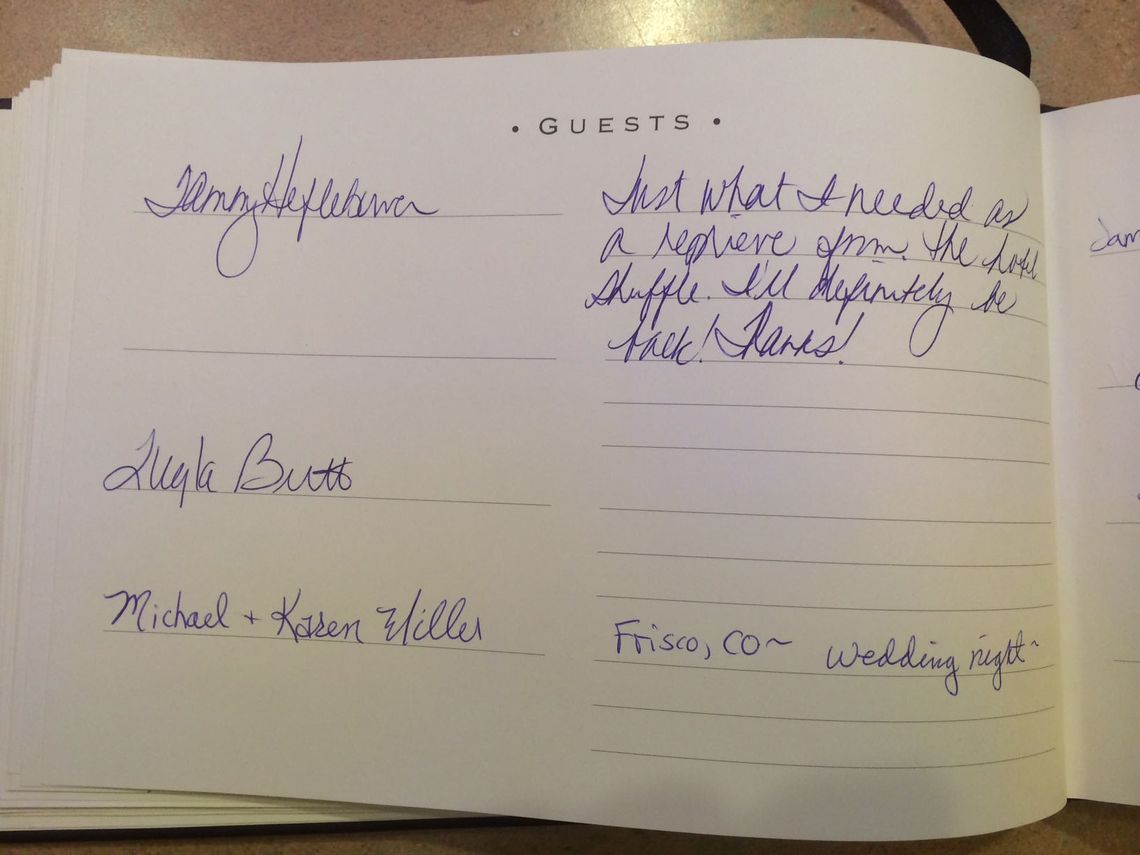 • GUESTS •
Tammy Heflebower
Just what I needed as
a reprieve from the hotel
shuffle. I'll definitely be
back! Thanks!
Butts
Michael + Karen
Frisco, CO~ wedding night~
Jam